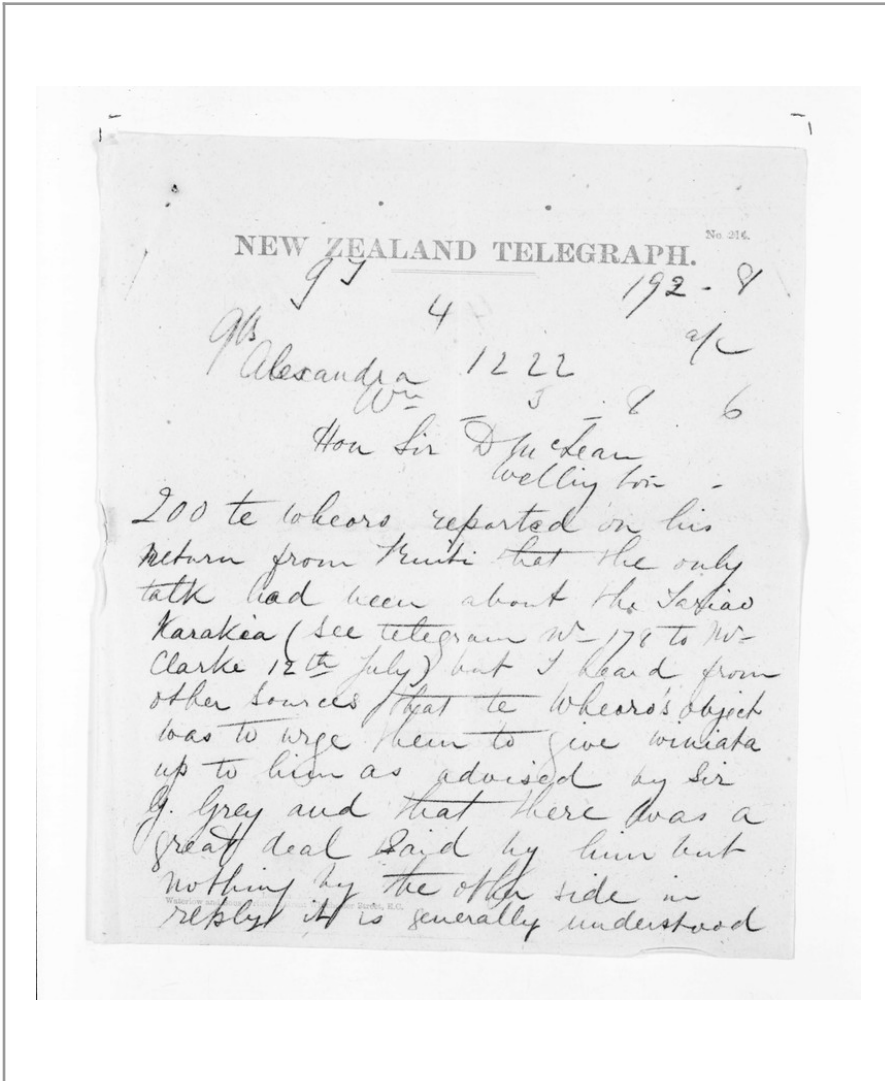 No. 214.
NEW ZEALAND TELEGRAPH.
192 - 8
4
Alexandra 1222
6
Hon Sir D McLean
Wellington -
200 te wheoro reported on his
return from Kuiti that the only
talk had been about the Tariao
Karakia (see telegram No- 178 to Mr-
Clarke 12th July) but I heard from
other sources that te Wheoro's object
was to urge them to give winiata
up to him as advised by Sir
G. Grey and that there was a
great deal said by him but
nothing by the other side in
reply it is generally understood